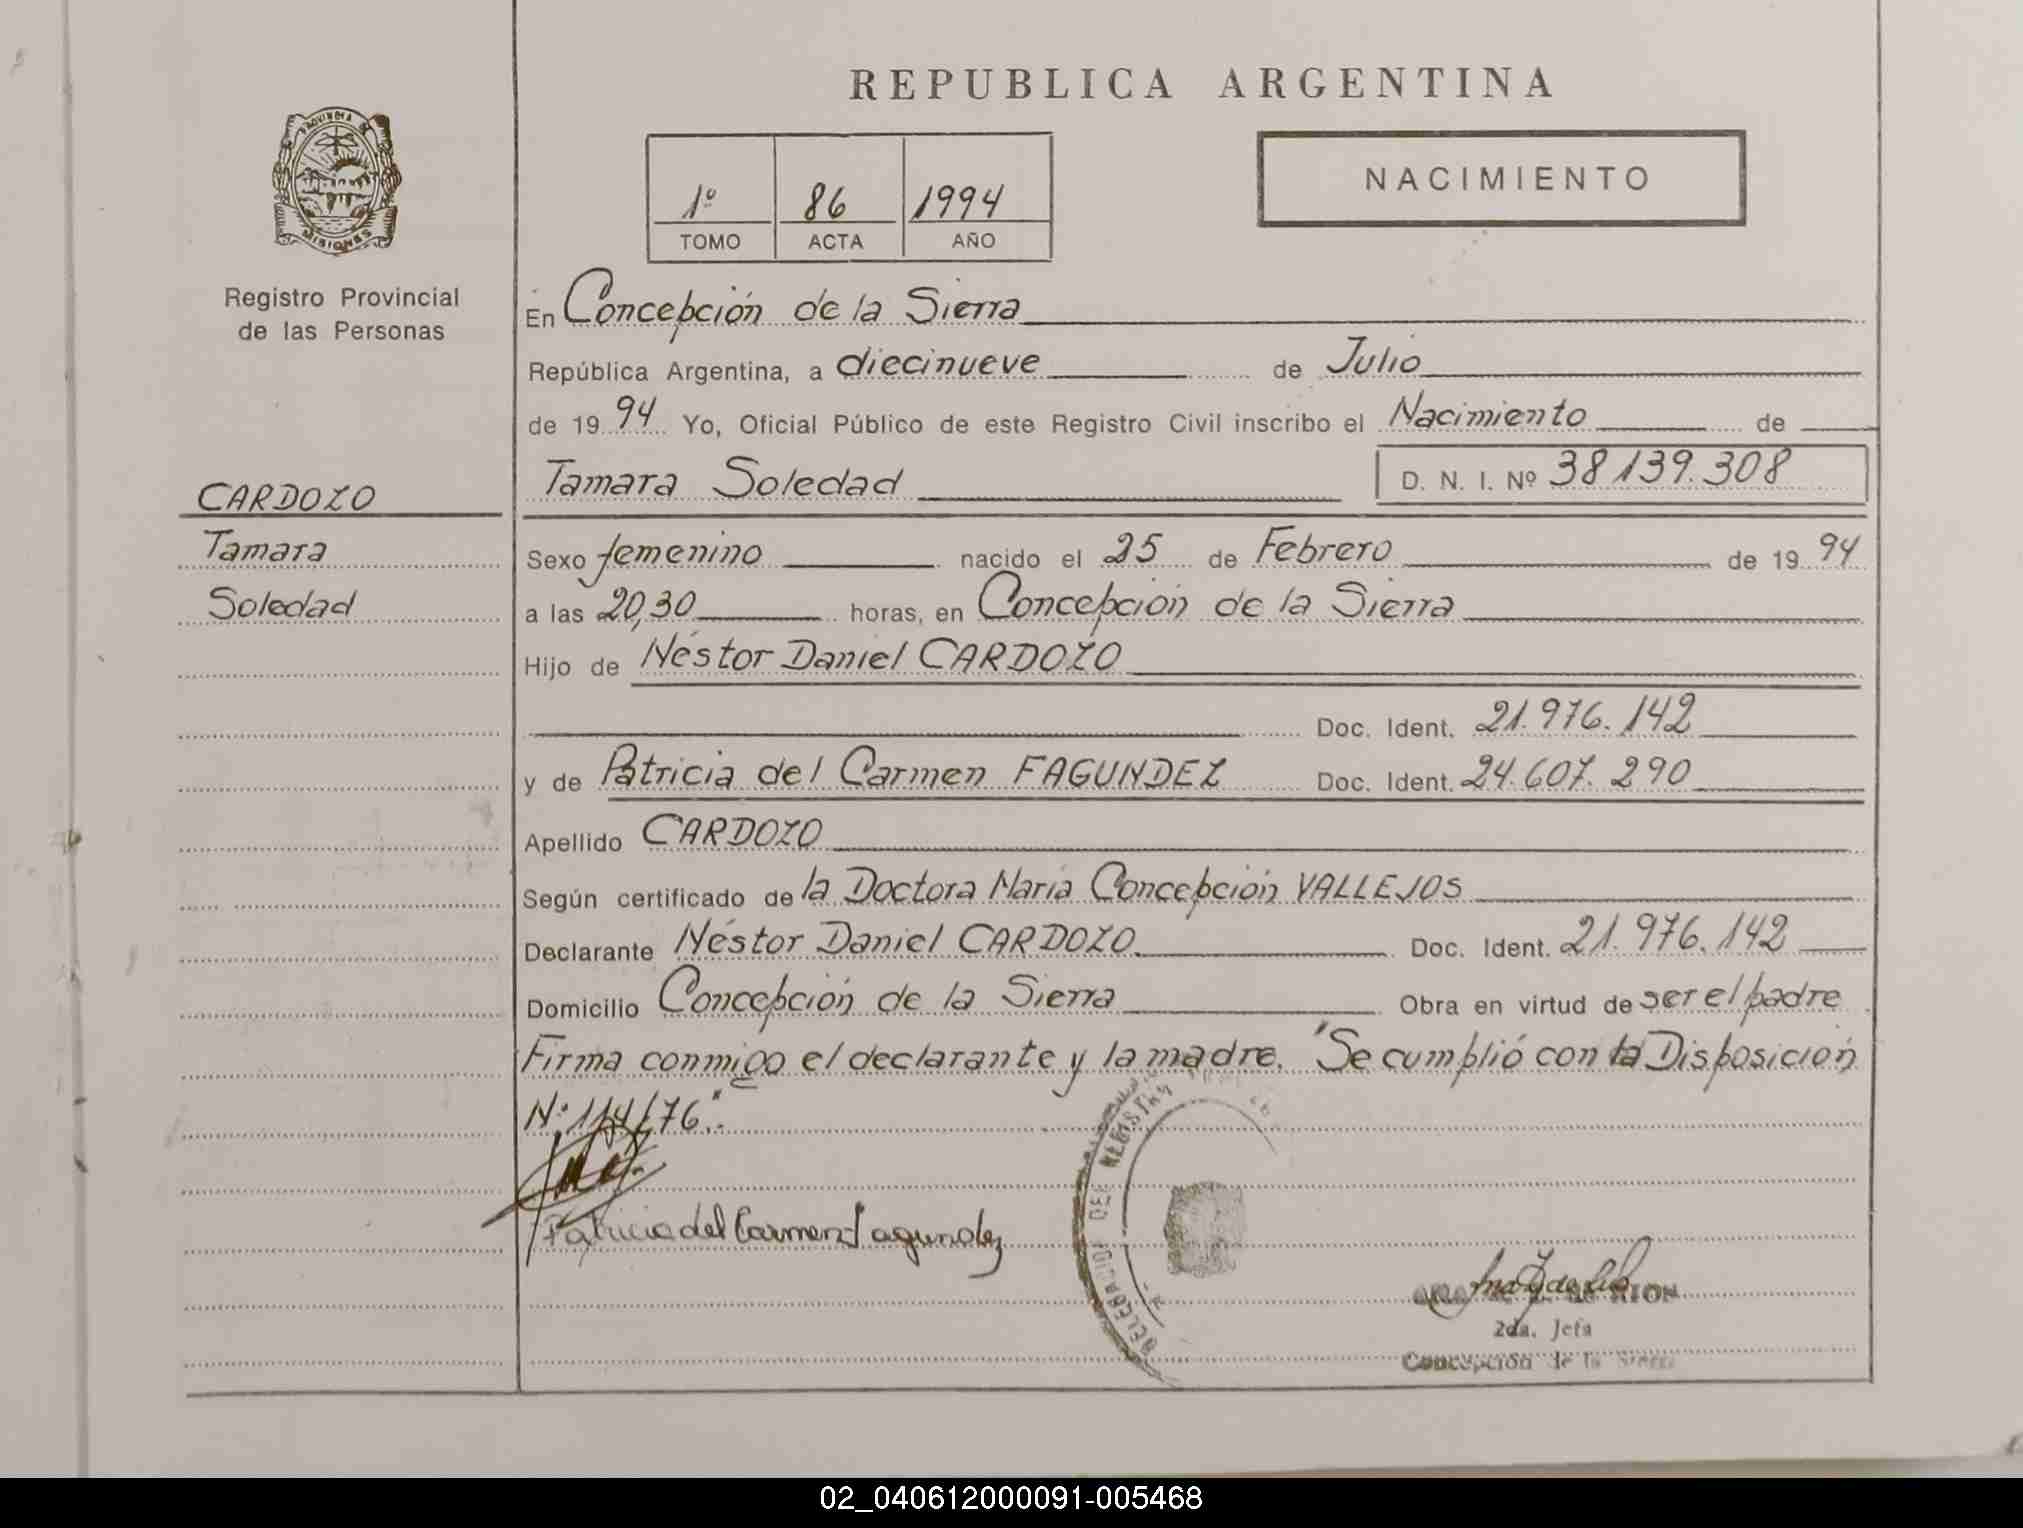 REPUBLICA ARGENTINA
PROVINCIA DE
MISIONES
1º 86 1994
TOMO ACTA AÑO
NACIMIENTO
Registro Provincial
de las Personas
En Concepción de la Sierra
República Argentina, a diecinueve de Julio
de 1994 Yo, Oficial Público de este Registro Civil inscribo el Nacimiento de
CARDOZO
Tamara Soledad D. N. I. Nº 38139.308
Tamara
Soledad
Sexo femenino nacido el 25 de Febrero de 1994
a las 20,30 horas, en Concepción de la Sierra
Hijo de Néstor Daniel CARDOZO
Doc. Ident. 21.976.142
y de Patricia del Carmen FAGUNDEZ Doc. Ident. 24.607.290
Apellido CARDOZO
Según certificado de la Doctora María Concepción VALLEJOS
Declarante Néstor Daniel CARDOZO Doc. Ident. 21.976.142
Domicilio Concepción de la Sierra Obra en virtud de ser el padre
Firma conmigo el declarante y la madre. "Se cumplió con la Disposición
Nº 114/76".-
Patricia del Carmen Fagundez
DELEGACION DEL REGISTRO
2da. Jefa
Concepción de la Sierra
02_040612000091-005468